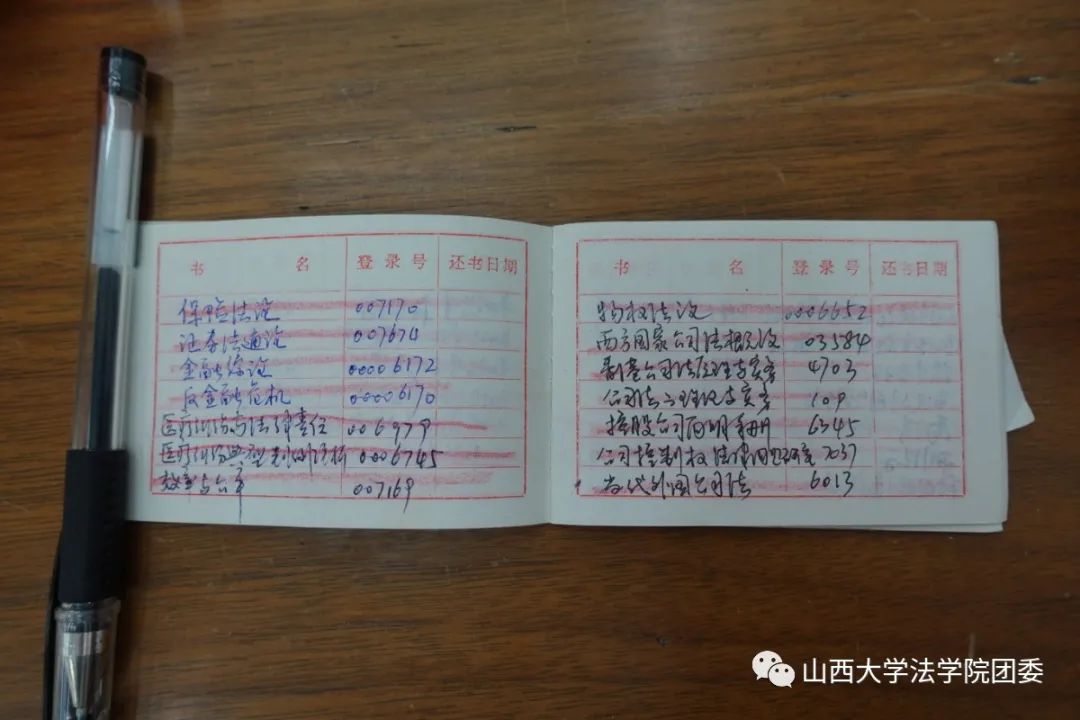 书名 登录号 还书日期
保险法论 007170
证券法通论 007674
金融综论 00006172
反金融危机 00006170
医疗纠纷与法律责任 006979
医疗纠纷典型判例评析 0006745
效率与公平 007169
书名 登录号 还书日期
物权法论 0006652
西方国家公司法概论 03584
香港公司法原理与实务 4703
公司法之理论与实务 109
控股公司的明手册 6345
公司控制权法律问题研究 7037
当代外国公司法 6013
山西大学法学院团委